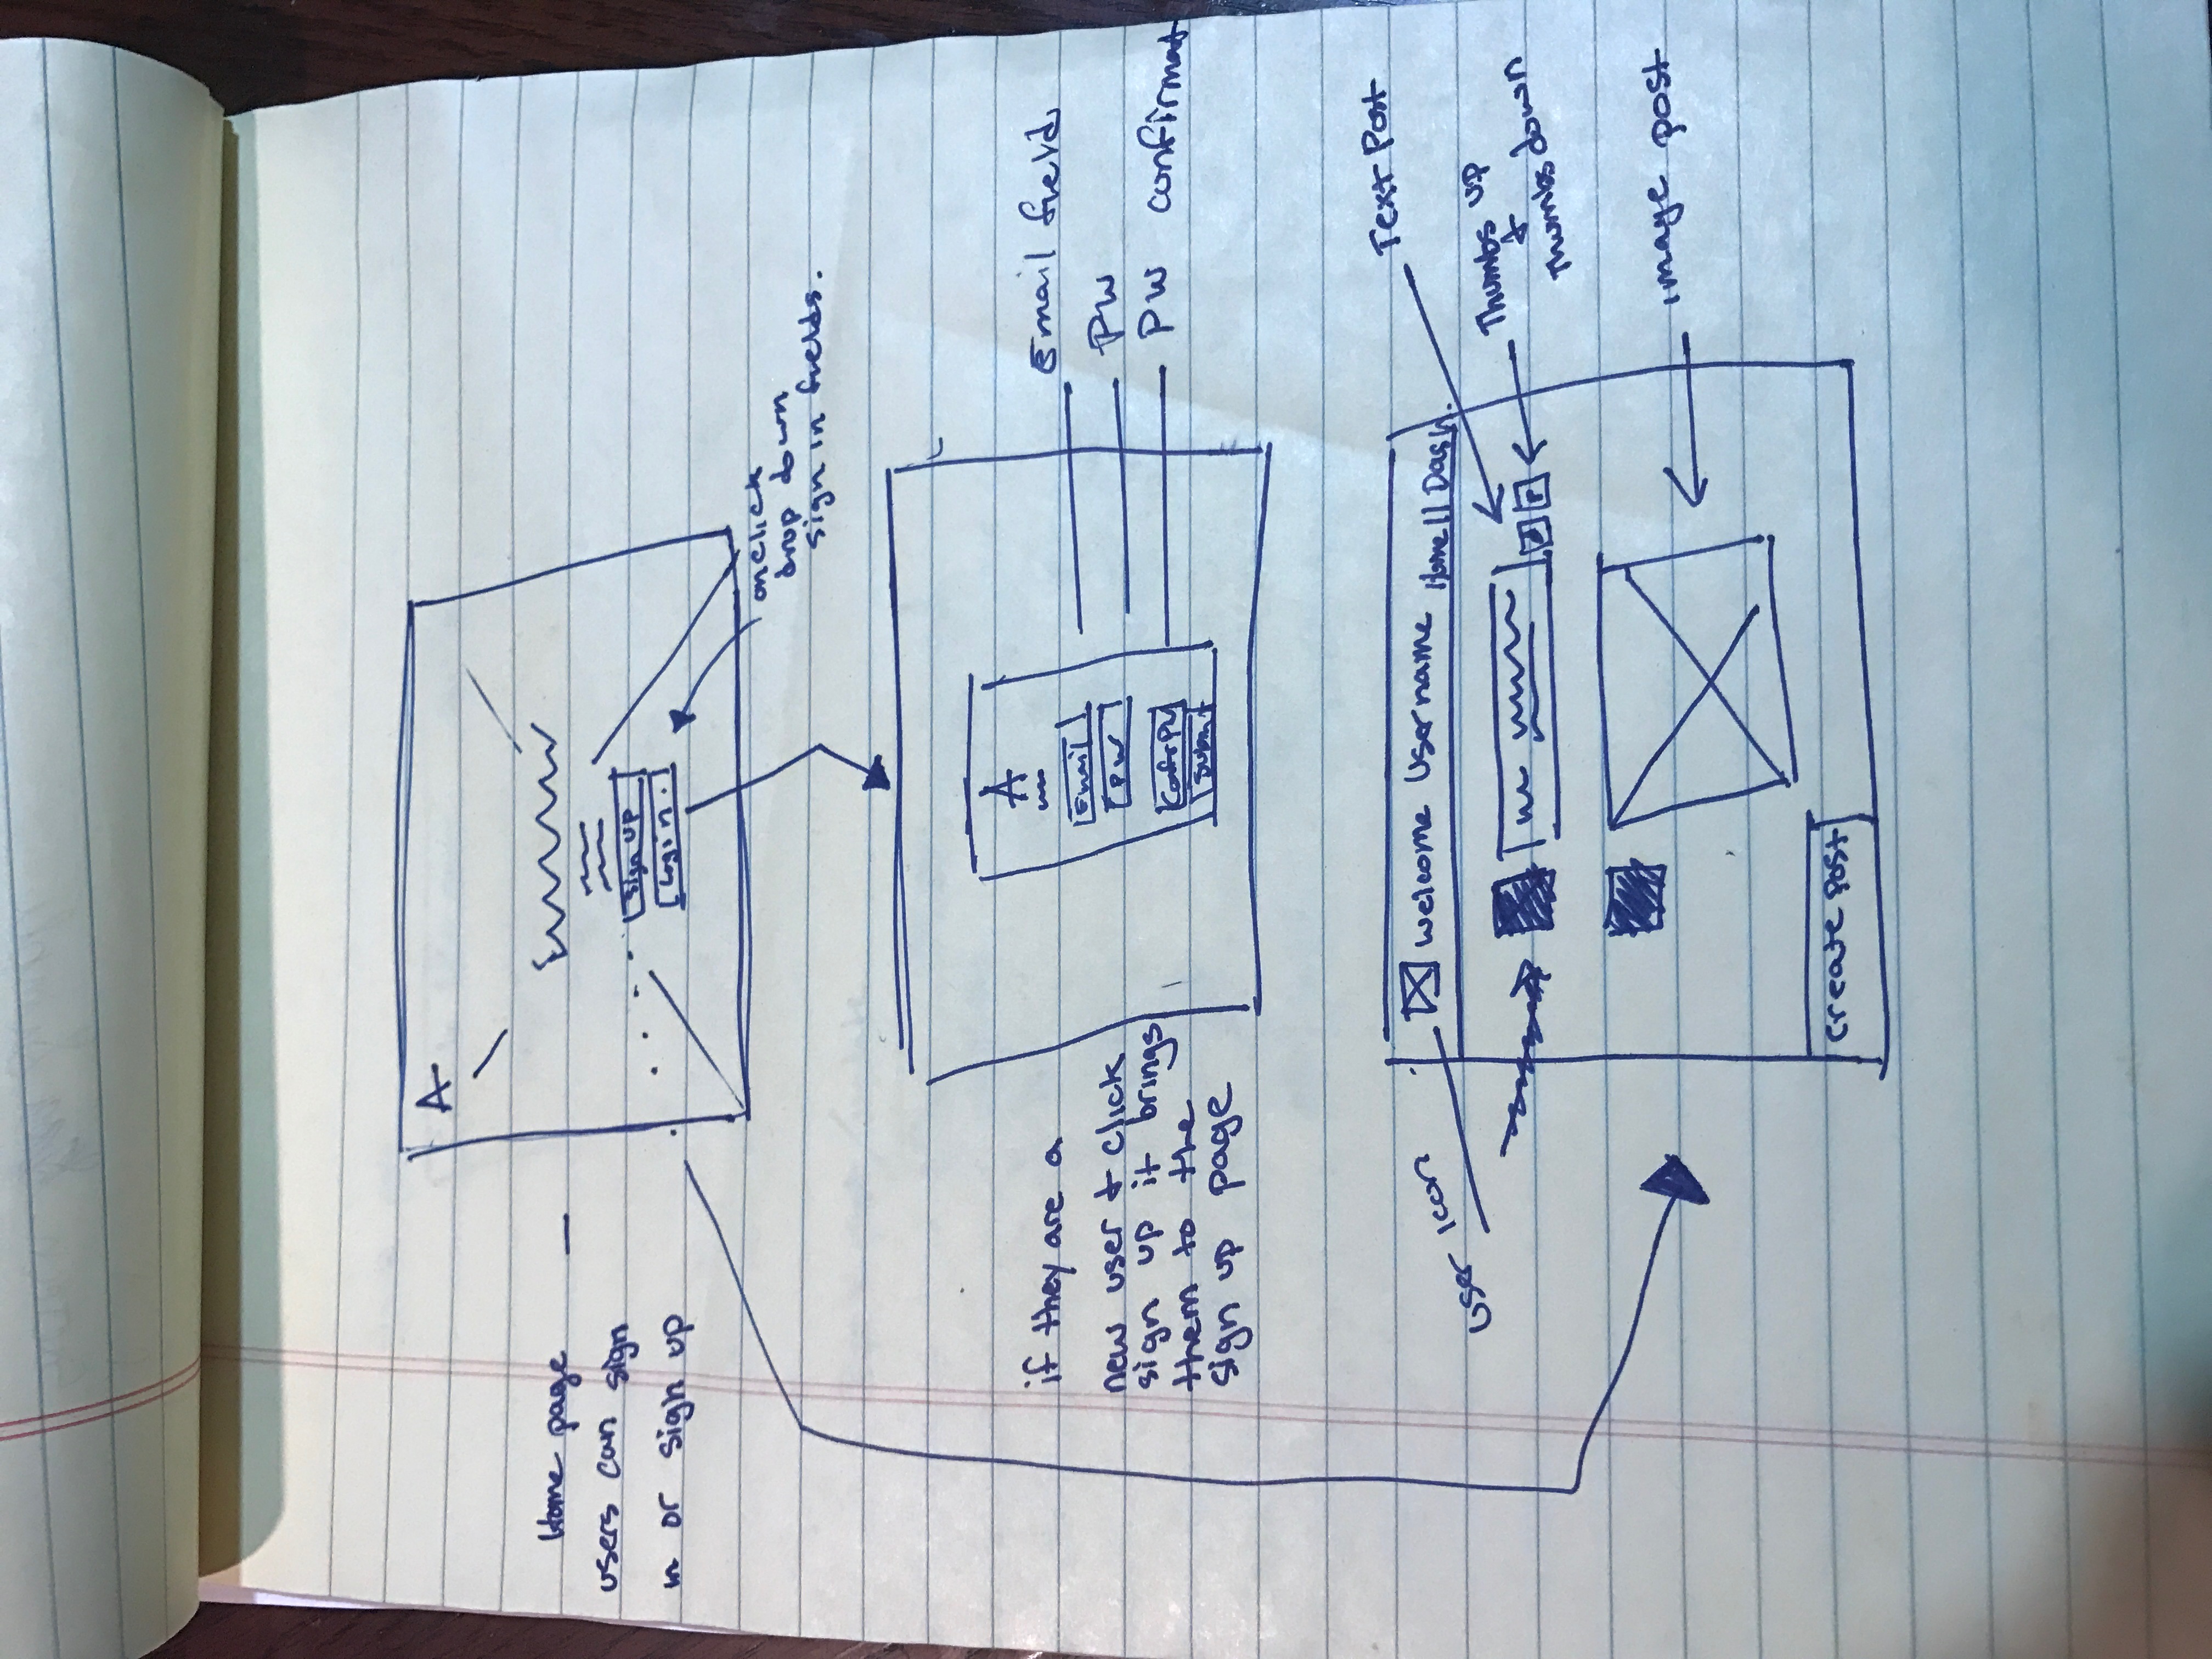 Home page
users can sign
in or sign up
A
Sign up
Login.
onclick
drop down
sign in fields.
if they are a
new user + click
sign up it brings
them to the
sign up page
A
Email
PW
Submit
Email field
PW
PW confirmat
user icon
welcome Username Home || Dash.
Text Post
Thumbs up
+
Thumbs down
image post
Create Post